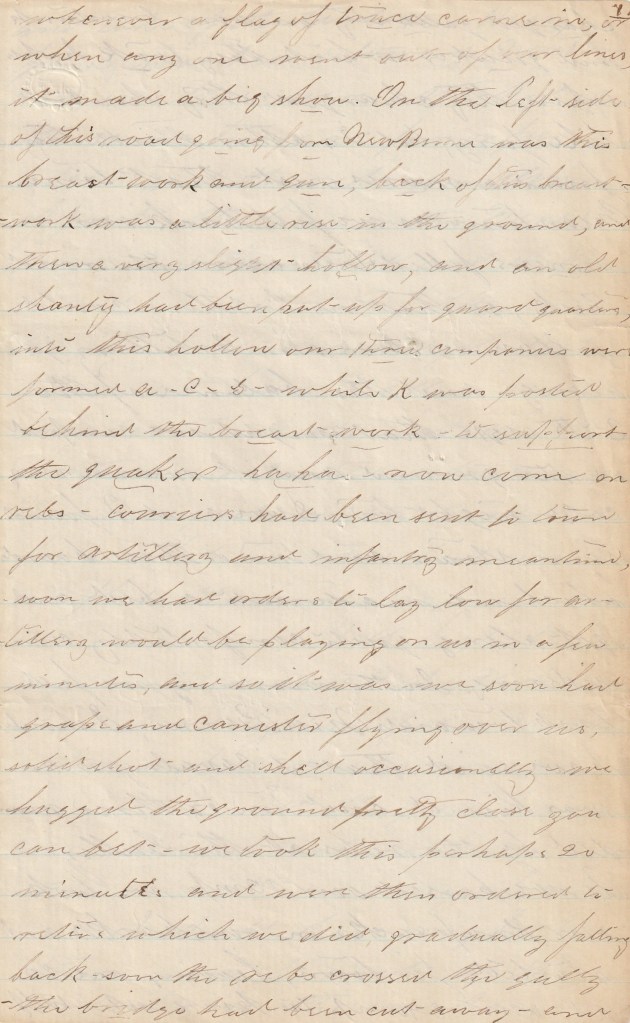 whenever a flag of truce came in, or
when any one went out of our lines,
it made a big show. On the left side
of this road going from NewBerne was this
breast-work and gun, back of this breast-
-work was a little rise in the ground, and
then a very slight hollow, and an old
shanty had been put up for guard quarters,
into this hollow our three companies were
formed a - C - G - while K was posted
behind the breast work - to support
the quaker ha ha. - now come on
rebs - couriers had been sent to town
for artillery and infantry meantime,
soon we had orders to lay low for ar-
tillery would be playing on us in a few
minutes, and so it was we soon had
grape and canister flying over us,
solid shot and shell occasionally - we
hugged the ground pretty close you
can bet - we took this perhaps 20
minutes and were then ordered to
retire which we did, gradually falling
back - soon the rebs crossed the gully
- the bridge had been cut away - and